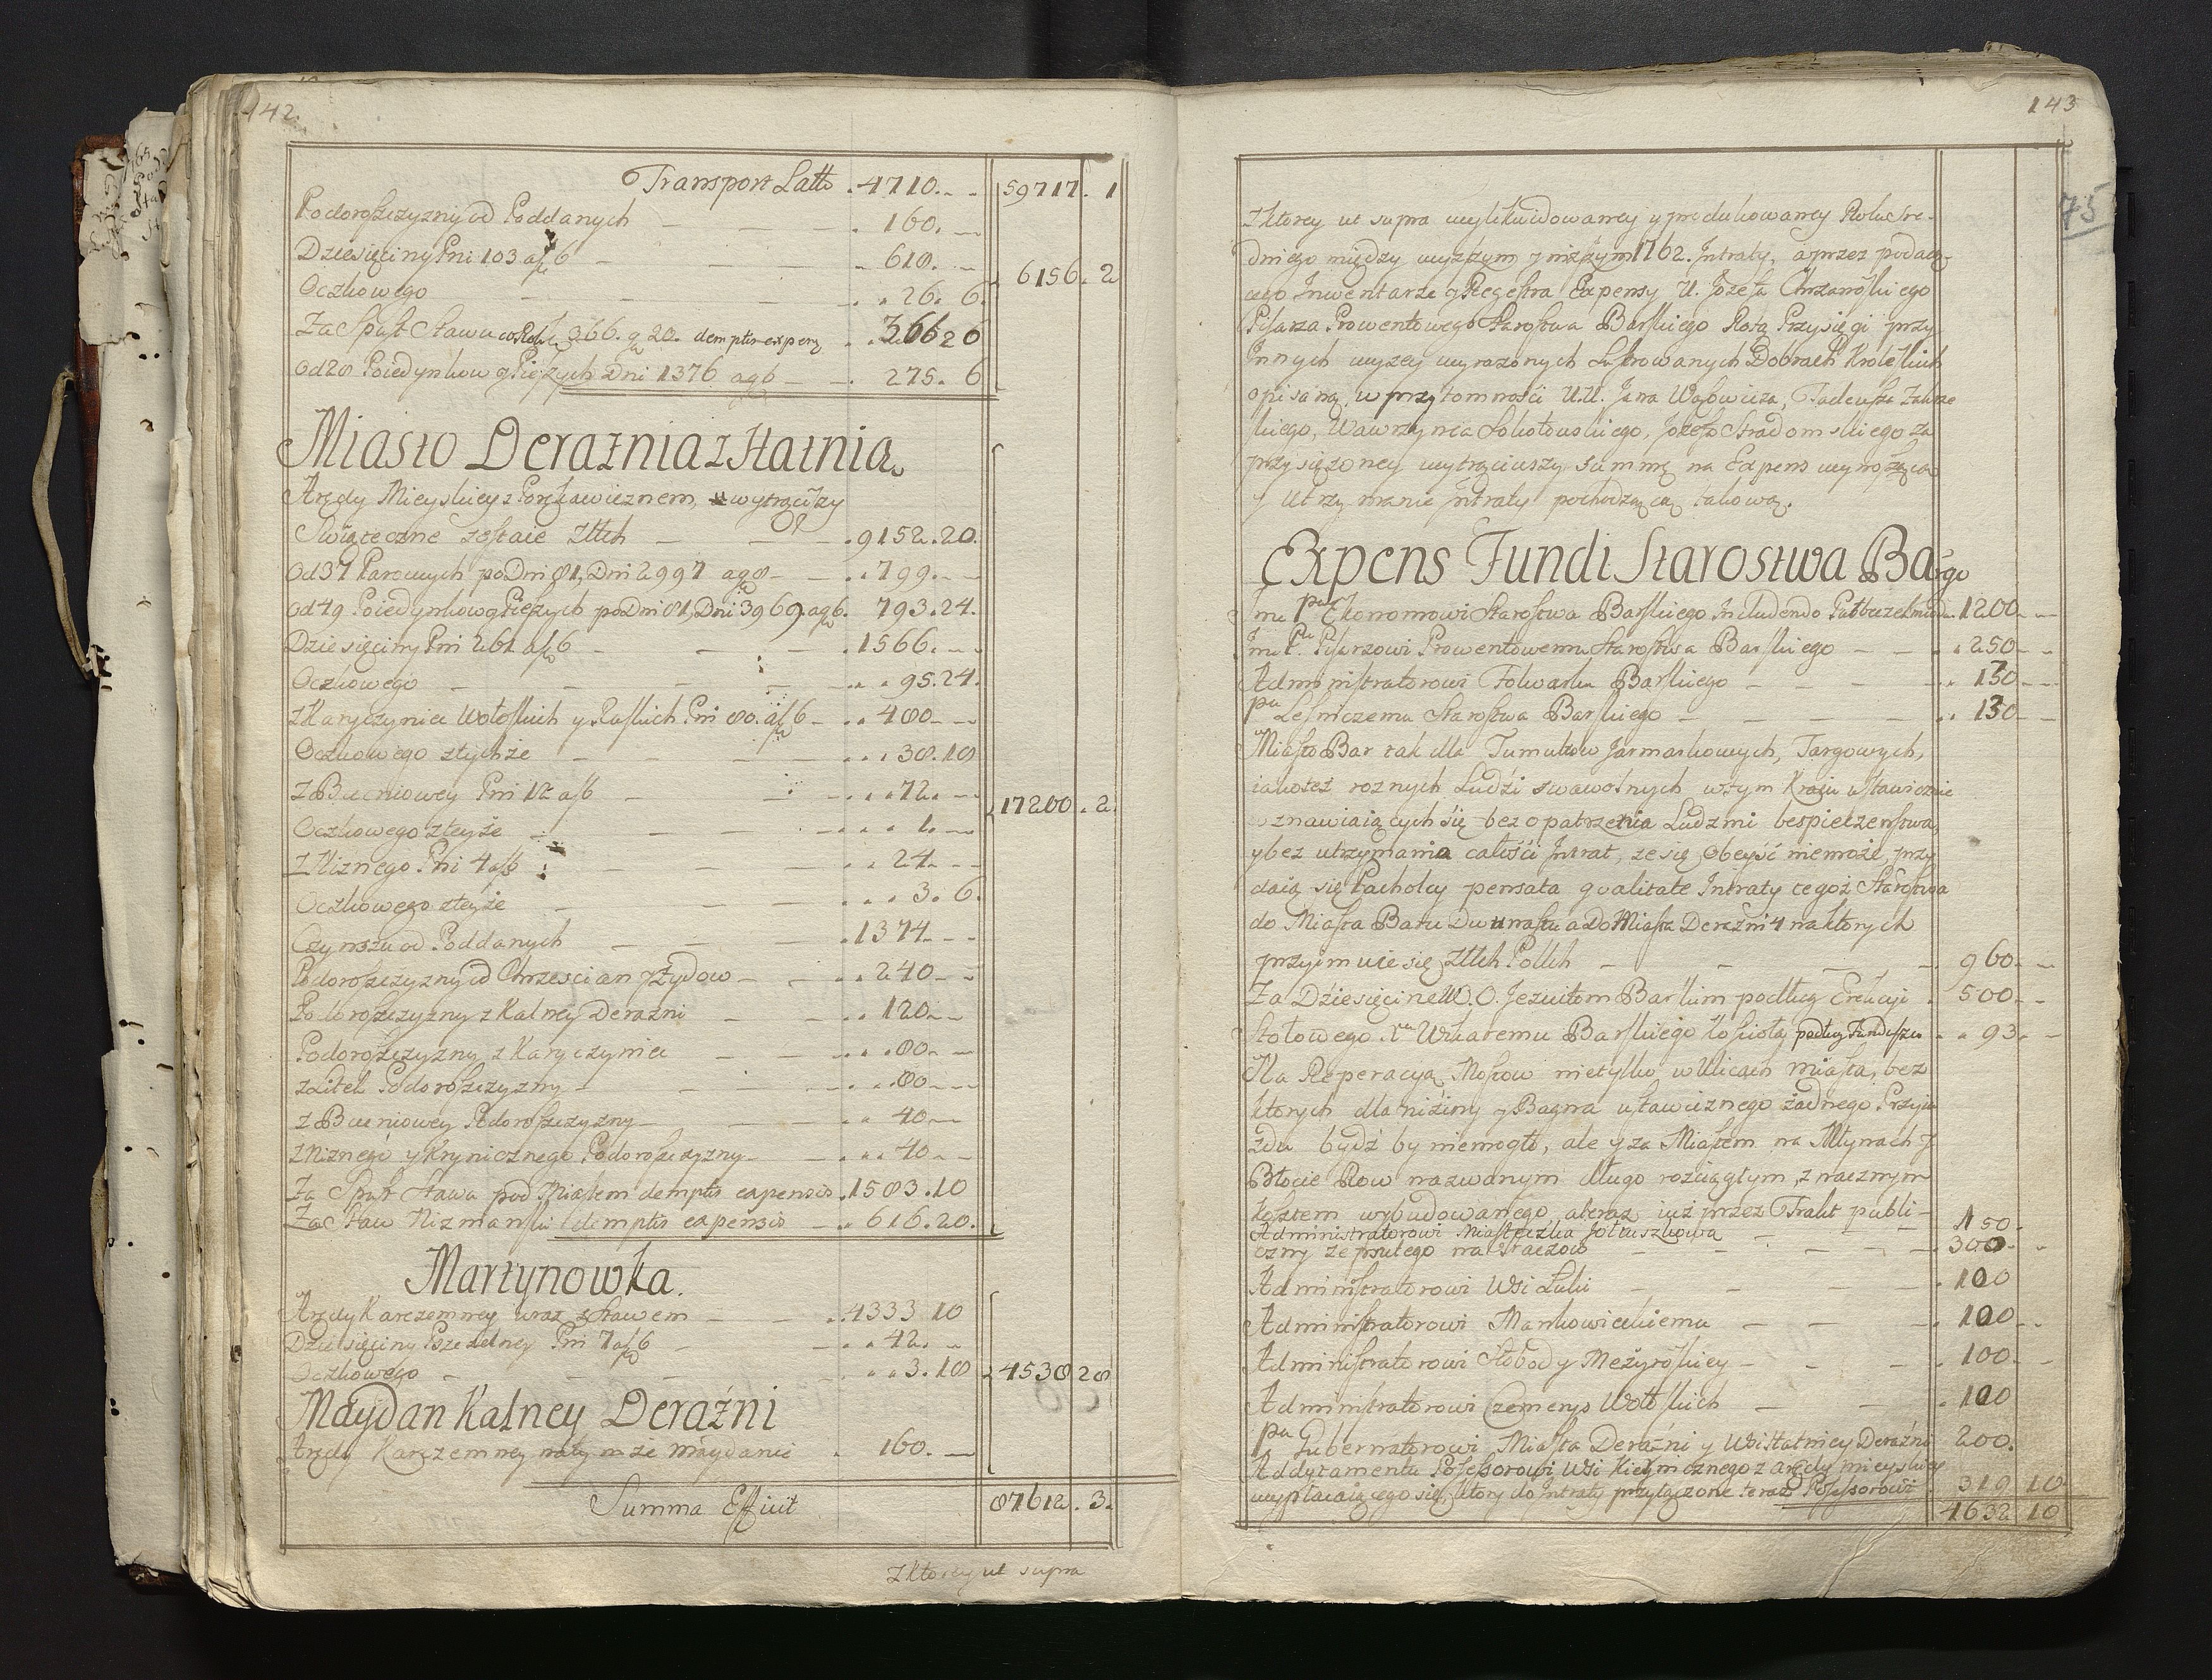 142.
Transport Latt .4710.-- 59717. 1
Podoroszczyzny od Poddanych 160.--
Dziesięciny Pni 103 a fl 6 618.-- 6156. 2
Oczkowego 26. 6.
Za Spust Stawu 366. g 20. demptis expens 366 20
od 28 Poiedynkow y Pieszych Dni 1376 a g 6 275. 6
Miasto Deraźnia z Kalnią
Arędy Mieyskiey z Porękawicznem, wytrąciwszy
Swiąteczne zostaie Złłch .9152.20.
Od 37 Parowych po Dni 81, Dni 2997 a g 8 ..799.--
Od 49 Poiedynkow y Pieszych po Dni 81, Dni 3969. a g 6. 793.24.
Dziesięciny Pni 261 a fl 6 .1566.--
Oczkowego 95.24.
z Karyczyniec Wołoskich y Ruskich Pni 80. a fl 6 ..480--
Oczkowego z tychże ...38.10
z Bucniowey Pni 12 a fl 6 ...72.-- 17200.2.
Oczkowego z teyże
z Niznego Pni 4 a fl 6 ..24--
Oczkowego z teyże ...3.6.
Czynszu od Poddanych .1374--
Podoroszczyzny od Chrzescian y Zydow ..240--
Podoroszczyzny z Kalney Deraźni ..120--
Podoroszczyzny z Karyczyniec ...80--
Podoroszczyzny ..80--
z Bucniowey Podoroszczyzny ..40--
z Niznego y Krynicznego Podoroszczyzny ...40--
Za Spust Stawu pod Miastem demptis expensis .1583.10
Za Staw Nizmanski demptis expensis ..616.20.
Martynowka.
Arędy Karczemney wraz z Stawem ..4333 10
Dziesięciny Pszczelney Pni 7 a fl 6 ..42.--
Oczkowego ..3.18 4538 28
Maydan Kalney Deraźni
Arędy Karczemney na tymże Maydanie . 160.--
Summa Efficit 87612.3.
z Ktorey ut supra
143
75
z ktorey ut supra wylikwidowaney y produkowaney Roku Sre-
dniego między wyższym y niższym 1762. Intraty, a przez podaią-
cego Inwentarze y Regestra Expensy U. Jozefa Chrzanowskiego
Pisarza Prowentowego Starostwa Barskiego Rotą Przysięgi przy
Innych wyzey wyrazonych Lustrowanych Dobrach Krolewskich
opisaną, w przytomności U.U. Jana Wąsowicza, Tadeusza Zakrze
skiego, Wawrzynca Sokołowskiego, Jozefa Stradomskiego za
przysięzoney wytrąciwszy summę na Expens wynoszącą
y utrzymanie Intraty pochodzącą takową.
Expens Fundi Starostwa Ba-go
Jmć Pu Ekonomowi Starostwa Barskiego Includendo .1200--
Jmć Pu Pisarzowi Prowentowemu Starostwa Barskiego ..250--
Administratorowi Folwarku Barskiego ..150--
Pu Lesniczemu Starostwa Barskiego .. 130--
Miasto Bar tak dla Tumultow Jarmarkowych, Targowych,
iako też roznych Ludzi swawolnych w tym Kraiu ustawicznie
znawiaiących się bez opatrzenia Ludzmi bespieczenstwa,
y bez utrzymania całości Intrat, ze się obeyść niemoże, przy
daią się Pacholcy pensata qualitate Intraty tegoż Starostwa
do Miasta Baru Dwunastu a Do Miasta Deraźni 4 na ktorych
przyimuie się Złłch Pollch . 960.--
Za Dziesięcinę W.O. Jezuitom Barskim podług Erekcyi . 500--
Stołowego Xu Wikaremu Barskiego Kosciołą podług Funduszu ..93.--
Na Reperacyą Mostow nietylko w Ulicach miasta, bez
ktorych dla niziny y Bagna ustawicznego żadnego Przyia
zdu bydź by niemogło, ale y za Miastem na Młynach y
Błocie Row nazwanym długo rozciągłym, znacznym
kosztem wybudowanego, a teraz iuż przez Trakt publi-
Administratorowi Miasteczka Jołtuszkowa 150-
czny zepsutego na .300--
Administratorowi Wsi Łuki . 100
Administratorowi Mankowieckiemu . 100--
Administratorowi Słobody Meżyrowskiey . 100--
Administratorowi Czemerys Wołoskich . 100
Pu Gubernatorowi Miasta Deraźni y Wsi Kalniey Deraźni 200.
Addytamentu Possessorowi Wsi z Arędy mieyskiey
wypłacaiącego się, ktory do Intraty przyłączone teraz Possessorowi . 319 10
4632 10